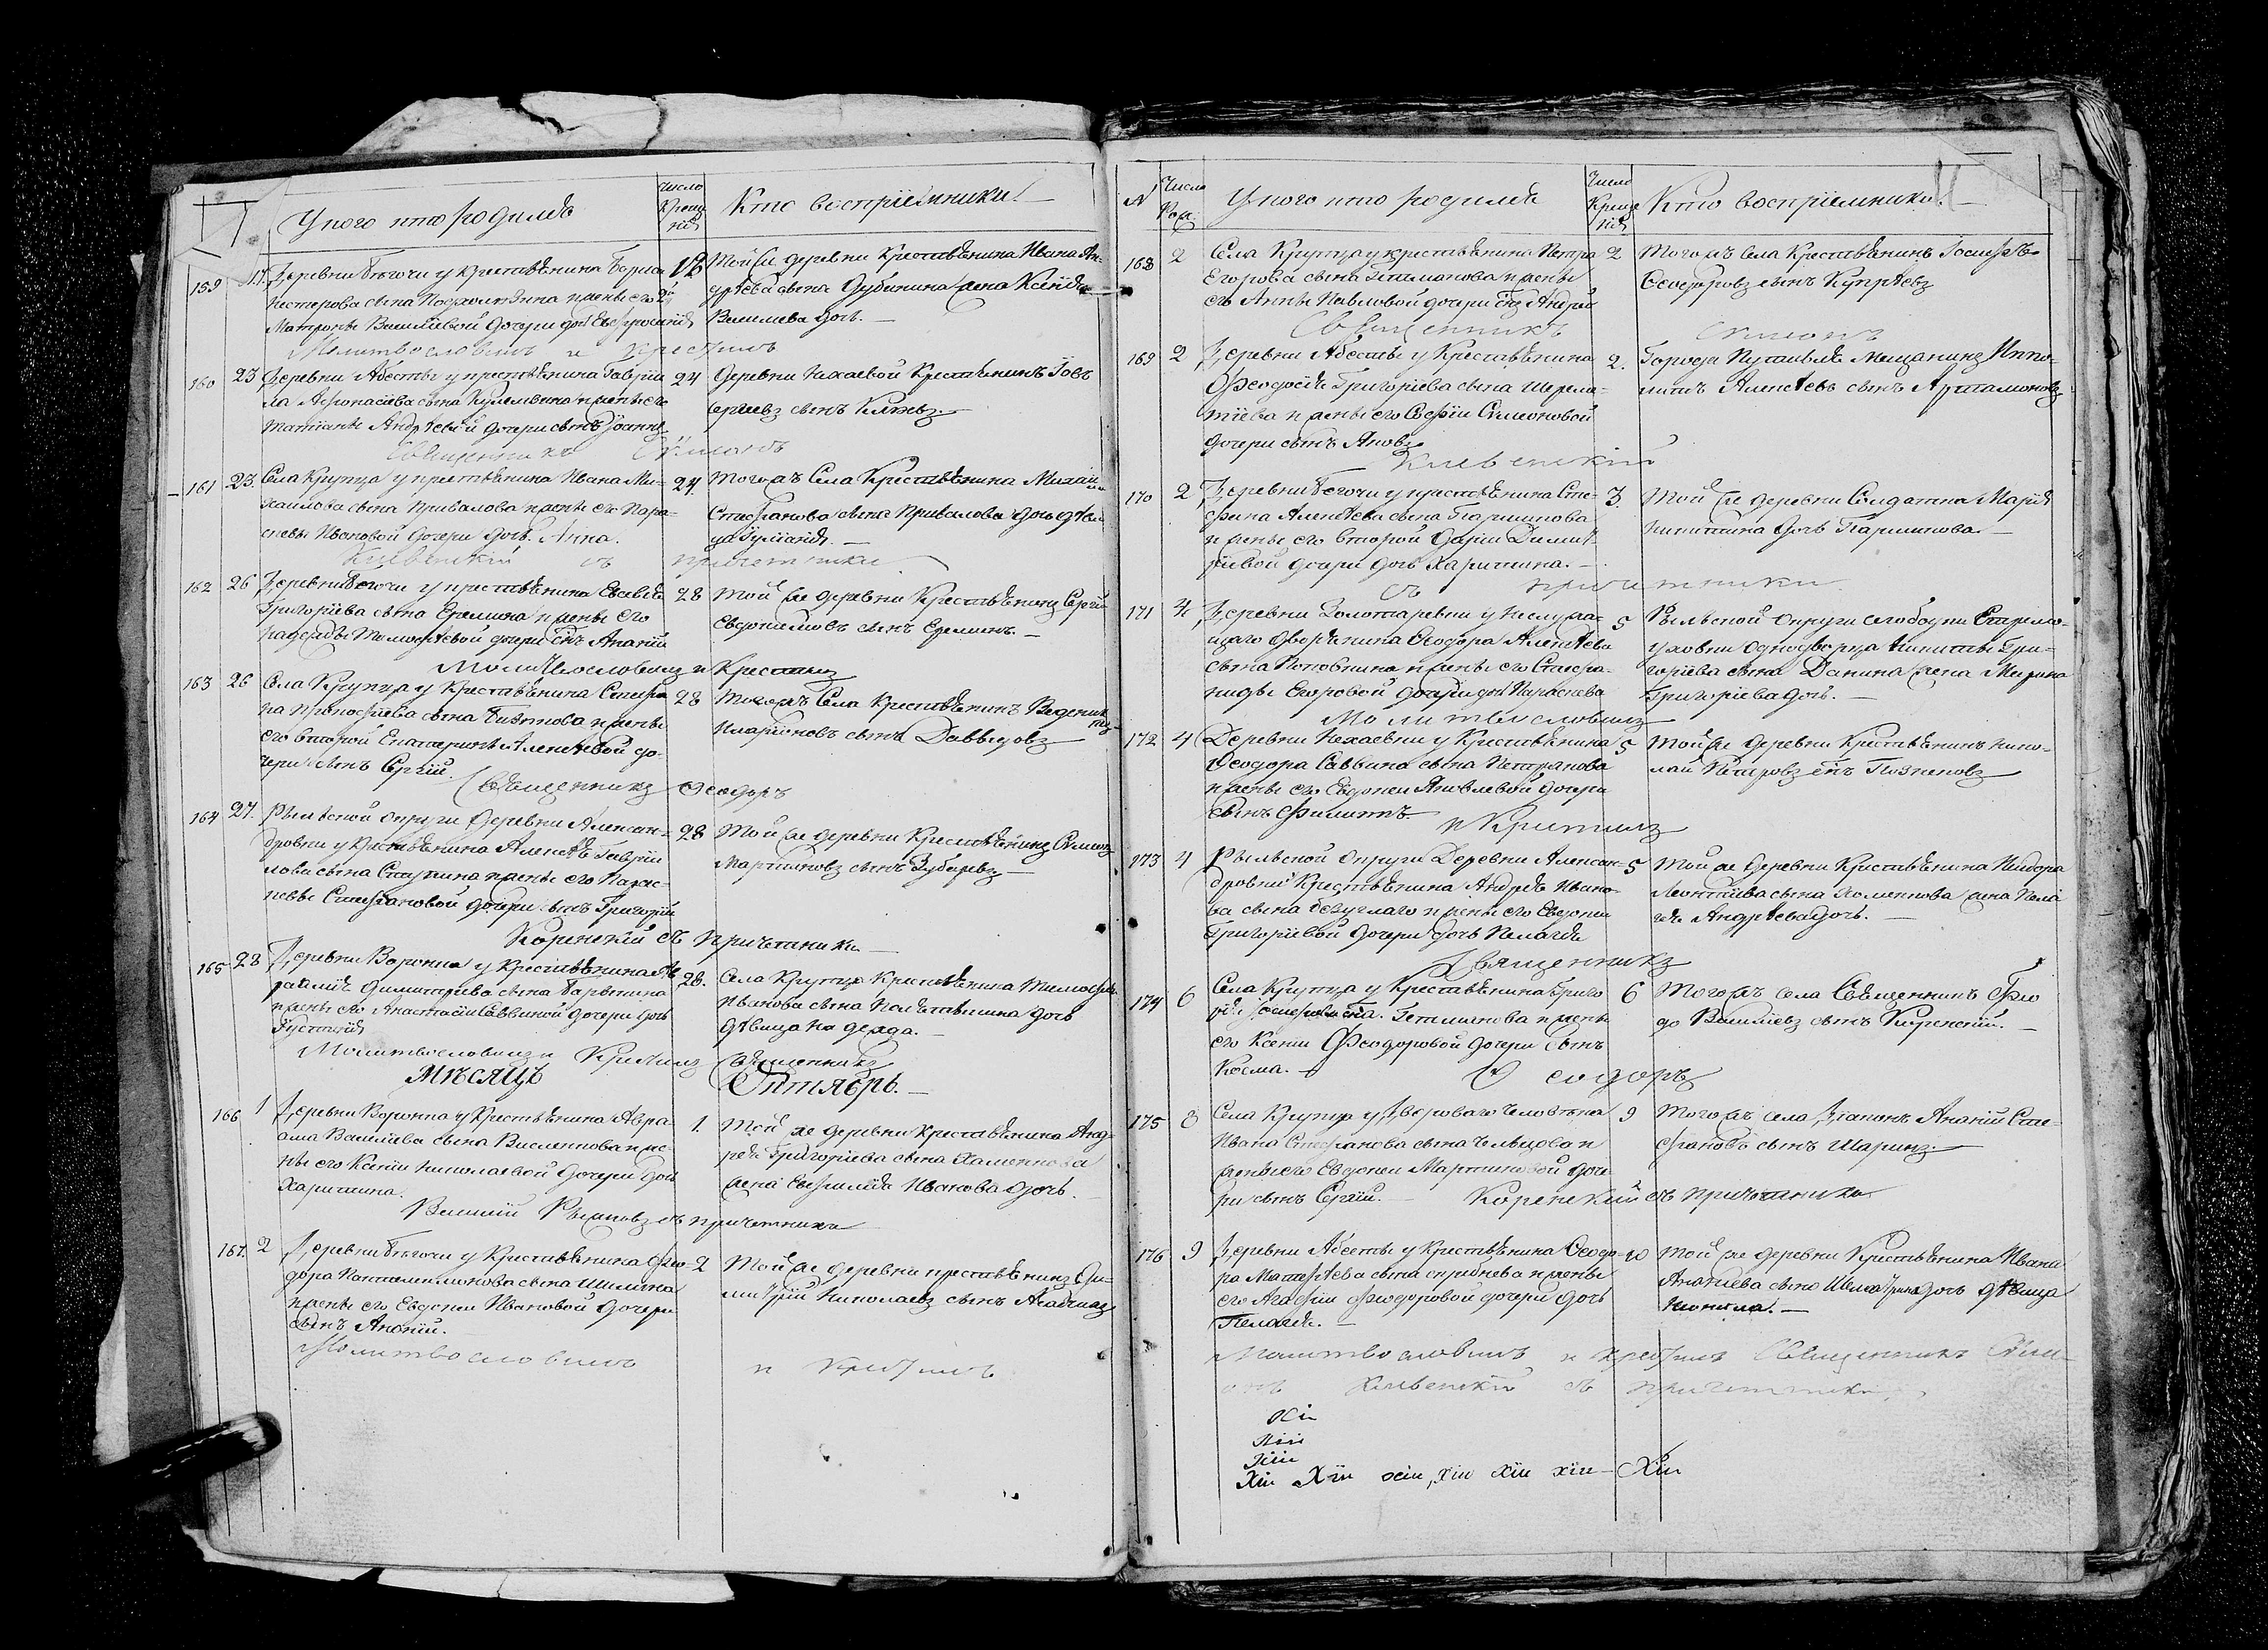 У кого кто родился
Число Крещенія
Кто восприемники
159 17 Деревни Бегочи у крестьянина Бориса
Нестерова сына и жены его
Матроны Васильевой дочери дочь Евфросинія
18 Той же деревни Крестьянина Ивана Ан-
дреева сына Дубинина жена Ксенія
Васильева дочь.
Молитвословилъ и крестилъ
160 23 Деревни Абесты у крестьянина Гаврiи
ла Афонасіева сына и жены его
Татіаны Андреевой дочери сынъ Іоаннъ
24 Деревни Нехаевой Крестьянинъ Іовъ
Сергеевъ сынъ
Священникъ Симеонъ
161 23 Села Крупца у крестьянина Ивана Ми-
хаилова сына Привалова и жены его Пара-
скевы Ивановой дочери дочь Анна.
24. Тогожъ Села Крестьянина Михаи
Стефанова сына Привалова дочь деви
ца Іуліанія.
Кіевскій съ причетники
162 26 Деревни Бегочи у крестьянина Евсевія
Григоріева сына Еремина и жены Его
Надежды Тимофеевой дочери сынъ Ананій
28 Той же деревни Крестьянинъ Сергій
Евдокимовъ сынъ Ереминъ.
Молитвословилъ и Крестилъ
163 26 Села Крупца у Крестьянина Стефа
на Прокофіева сына и жены
его второй Екатерины Алексеевой до-
чери сынъ Сергій.
28 Тогожъ Села Крестьянинъ
Иларіоновъ сынъ Давыдовъ
Священникъ Феодоръ
164 27. Рыльской округи Деревни Алексан-
дровки у Крестьянина Алексея Гаврiи
лова сына и жены его Парас-
кевы Стефановой дочери сынъ Григорій
28 Той же деревни Крестьянинъ Симеонъ
Мартиновъ сынъ Зубаревъ
Коренскій съ причетники
165 28 Деревни Воронка у Крестьянина Ав
Димитріева сына
и жены его Анастасіи Саввиной дочери дочь
Іустинія
28. Села Крупца Крестьянина Тимофея
Иванова сына дочь
девица Надежда.
Молитвословилъ и Крестилъ Священникъ
Месяцъ Октябрь.
166 1 Деревни Воронка у Крестьянина Авра-
ама Васіліева сына и же-
ны его Ксеніи Николаевой дочери дочь
Харитина.
1. Той же деревни Крестьянина Анд-
рея Григоріева сына Хаменкова
жена Евфимія Иванова дочь.
Василій съ причетники
167. 2 Деревни Бегочи у Крестьянина Фео-
дора Пантелеимонова сына Шилина
и жены его Евдокіи Ивановой дочери
сынъ Ананій.
2 Той же деревни крестьянинъ Ди-
митрій Николаевъ сынъ
Молитвословилъ и крестилъ
N Число Рож.
У кого кто родился
Число Крещенія
Кто восприемники.
168 2 Села Крупца у крестьянина Петра
Егорова сына Гетманова и жены
его Анны Павловой дочери снъ Андрей
2 Тогожъ Села Крестьянинъ Іосифъ
Феодоровъ сынъ Купреевъ
Священникъ Симеонъ
169 2 Деревни Абесты у Крестьянина
Феодосія Григоріева сына Шереме-
тіева и жены его Софіи Симеоновой
дочери сынъ Яковъ
2. Города Путивля Мещанинъ Иппо-
литъ Алексеевъ сынъ Артамоновъ
Кіевскій
170 2 Деревни Бегочи у крестьянина Сте-
фана Алексеева сына Паршикова
и жены его второй Даріи Димит-
ріевой дочери дочь Харитина.
3. Той же деревни Солдатка Марія
Никитина дочь Паршикова.
съ причетники
171 4 Деревни Золотаревки у неслужа-
щаго дворянина Феодора Алексеева
сына и жены его Стефа-
ниды Егоровой дочери дочь Параскева
5 Рыльской округи слободки
однодворца Никиты Гри-
горіева сына Данина жена Марина
Григоріева дочь.
Молитвословилъ
172 4 Деревни Нехаевки у Крестьянина
Феодора Саввина сына
и жены его Евдокіи Яковлевой дочери
сынъ Филиппъ
5 Той же деревни Крестьянинъ Нико-
лай Петровъ снъ Позняковъ
и Крестилъ
173 4 Рыльской округи Деревни Алексан-
дровки Крестьянина Андрея Ивано-
ва сына Безуглаго и жены его Евдокіи
Григоріевой дочери дочь Пелагія
5 Той же деревни Крестьянина Исидора
Леонтіева сына Хоменкова жена Пела
гія Андреева дочь.
Священникъ
174 6 Села Крупца у Крестьянина Григо
рія Іосифова сына Гетманова и жены
его Ксеніи Феодоровой дочери сынъ
Косма.
6 Тогожъ села Священникъ Фео
доръ Васіліевъ сынъ Коренскій.
Феодоръ
175 8 Села Крупца у Двороваго человека
Ивана Стефанова сына и
жены его Евдокіи Мартиновой доче
ри сынъ Сергій.
9 Тогожъ села Діаконъ Ананій Сте-
фановъ сынъ Шаринъ.
Коренскій съ причетники
176 9 Деревни Абесты у Крестьянина Феодо-
ра Матфеева сына и жены
его Агафіи Феодоровой дочери дочь
Пелагія.
10 Той же деревни Крестьянина Ивана
Ананіева сына дочь девица
Неонила.
Молитвословилъ и крестилъ Священникъ Симе-
онъ Кіевскій съ причетники
Xiii Xiii Xiii Xiii Xiii Xiii Xiii